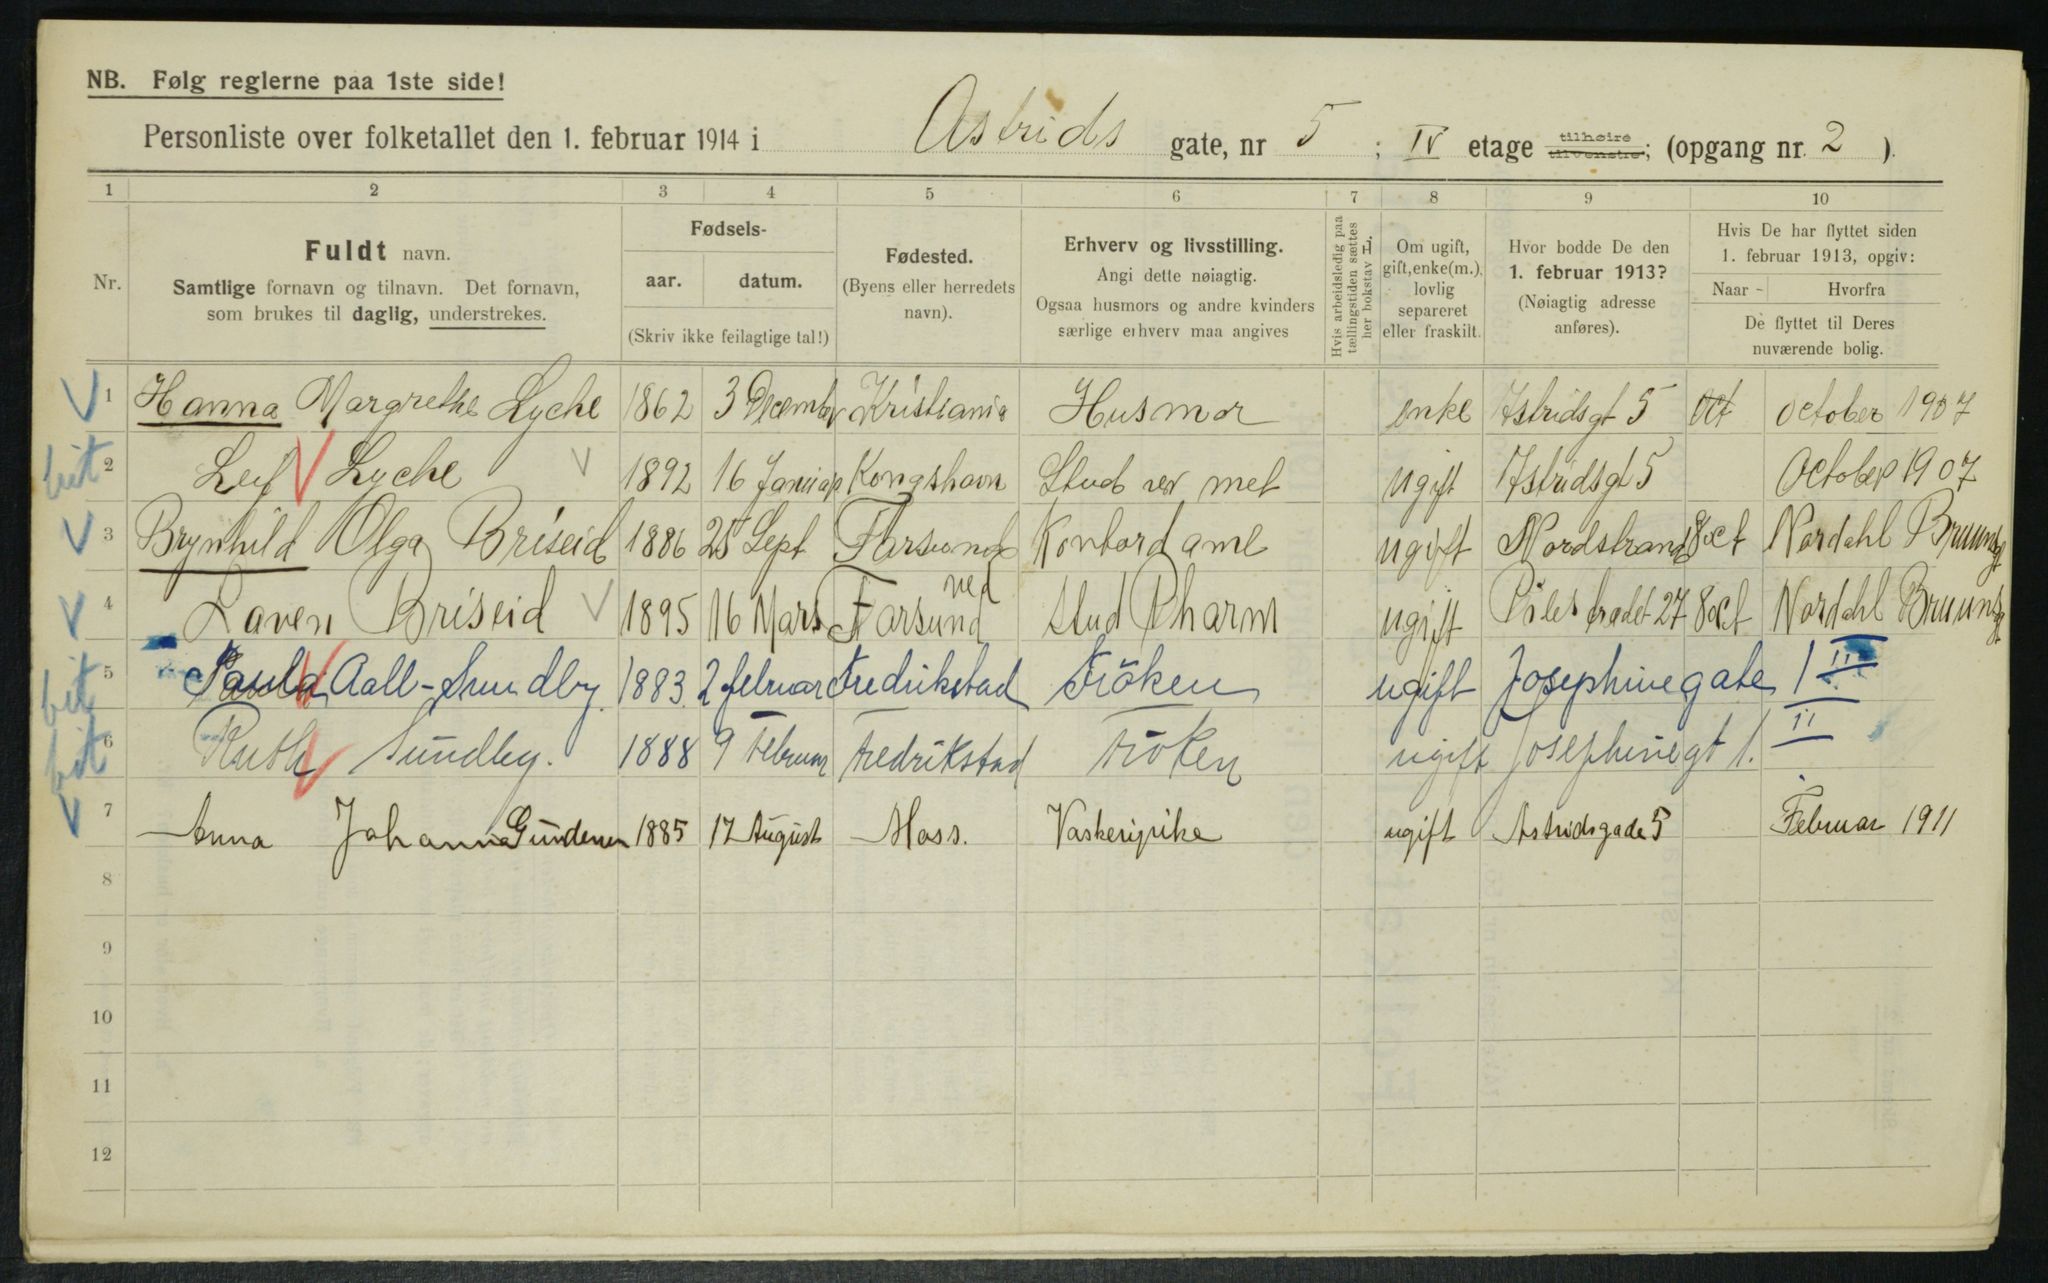 NB. Følg reglerne paa 1ste side!
Personliste over folketallet den 1. februar 1914 i Astrids gate, nr 5; IV etage tilhøire tilvenstre; (opgang nr. 2).
1 2 3 4 5 6 7 8 9 10
Nr.
Fuldt navn.
Samtlige fornavn og tilnavn. Det fornavn,
som brukes til daglig, understrekes.
Fødsels-
aar. datum.
(Skriv ikke feilagtige tal!)
Fødested.
(Byens eller herredets
navn).
Erhverv og livsstilling.
Angi dette nøiagtig.
Ogsaa husmors og andre kvinders
særlige erhverv maa angives
Hvis arbeidsledig paa
tællingstiden sættes
her bokstav L.
Om ugift,
gift, enke(m.),
lovlig
separeret
eller fraskilt.
Hvor bodde De den
1. februar 1913?
(Nøiagtig adresse
anføres).
Hvis De har flyttet siden
1. februar 1913, opgiv:
Naar - Hvorfra
De flyttet til Deres
nuværende bolig.
1 Hanna Margrethe Lyche 1862 3 December Kristiania Husmor enke Astridsgt 5 Oct October 1907
bit 2 Leif Lyche 1892 16 Januar Kongshavn Stud med ugift Astridsgt 5 October 1907
3 Brynhild Olga Briseid 1886 25 Sept Farsund Kontordame ugift Nordstrand 8 oct Nordahl Brunsgt
4 Laven Briseid 1895 16 Mars ved Farsund stud Pharm ugift Pilestrædet 27 8 oct Nordahl Brunsgt
bit 5 Paula Aall-Sundby 1883 2 februar Fredrikstad Fröken ugift Josephinegate 1 II
bit 6 Ruth Sundby. 1888 9 Februar Fredrikstad Fröken ugift Josephinegt 1. II
7 Anna Johanna Gundersen 1885 17 August Moss. Vaskeripike ugift Astridsgade 5 Februar 1911
8
9
10
11
12